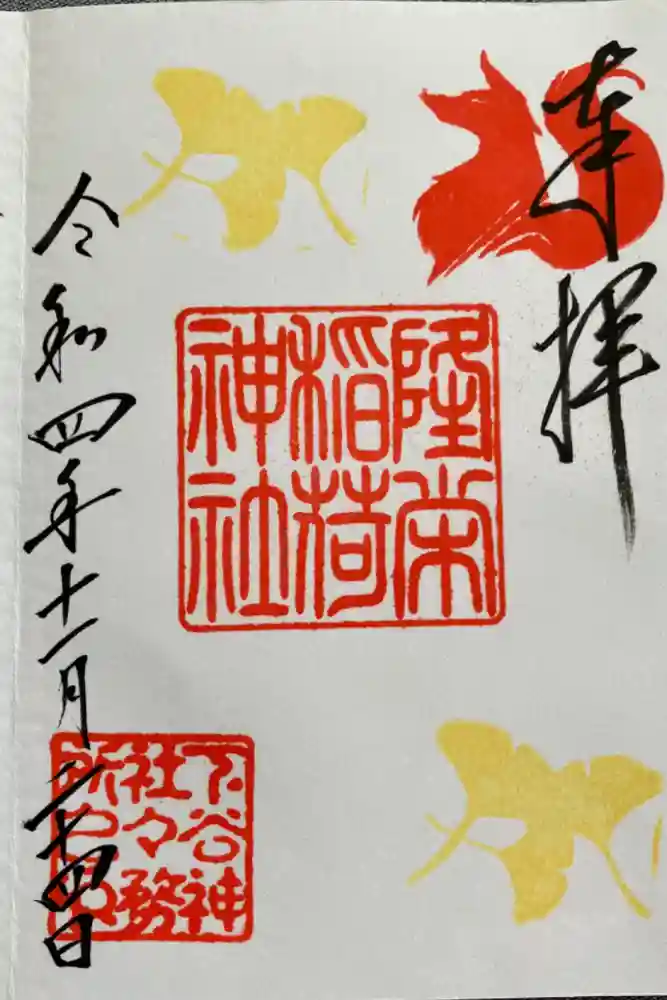 奉拝
隆栄
稲荷
神社
令和四年十一月二十四日
下谷神
社々務
所